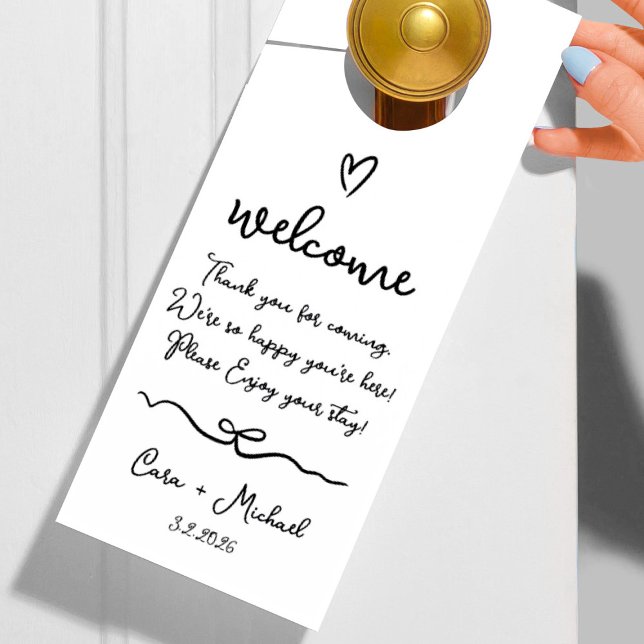 welcome
Thank you for coming.
We're so happy you're here!
Please Enjoy your stay!
Cara + Michael
3.2.2026